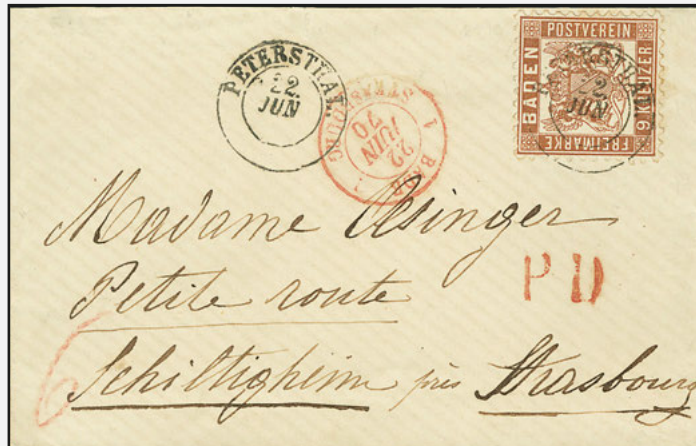 PETERSTHAL.
22
JUN
1 BADE STRASBOURG
22
JUIN
70
POSTVEREIN
BADEN
9 KREUZER
FREIMARKE
PETERSTHAL.
22
JUN
Madame Œsinger
P D
Petite route
Schiltigheim près Strasbourg
6